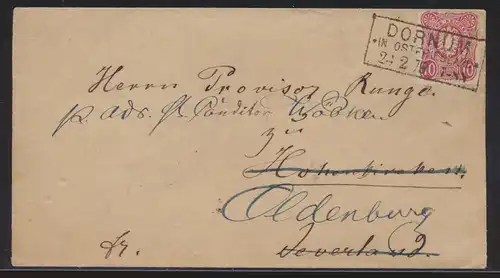 DORNUM
IN OSTFR
10 10
Herrn Provisor Runge.
p. ads. Hr. Conditor
zu
Hohenkirchen
Oldenburg
Jeverland.
fr.